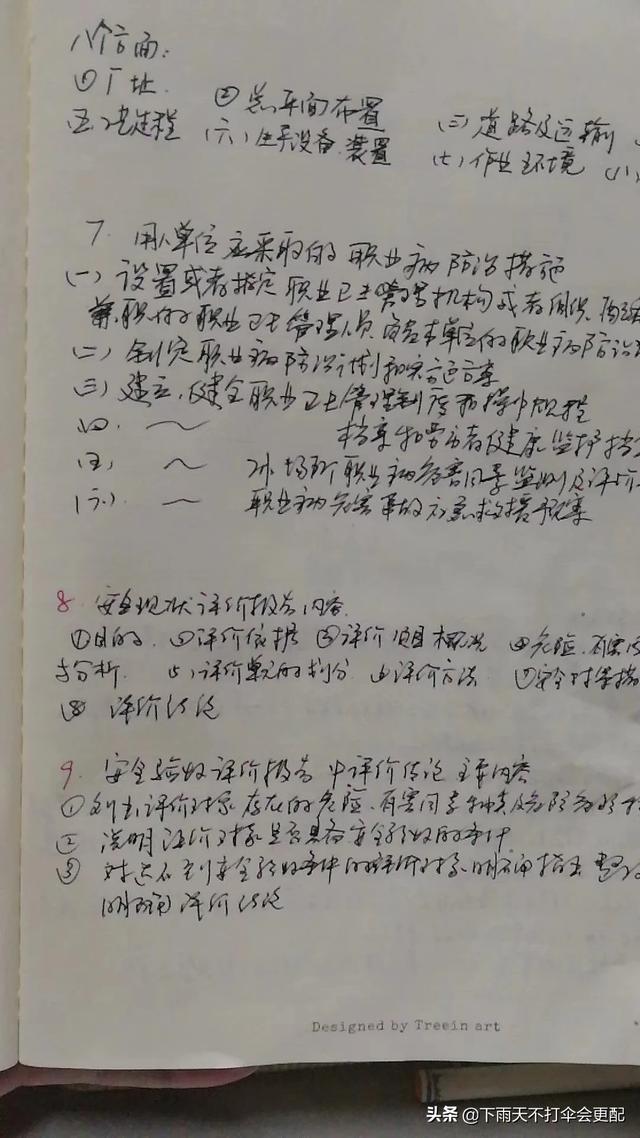 八个方面:
①厂址. ②总平面布置 (三)道路及运输
五、工艺过程 (六)生产设备、装置 (七)作业环境 (八)
7. 用人单位应采取的职业病防治措施
(一)设置或者指定职业卫生管理机构或者组织、配
兼职的职业卫生管理人员,负责本单位的职业病防治
(二)制定职业病防治计划和实施方案
(三)建立、健全职业卫生管理制度和操作规程
四、〜 档案和劳动者健康监护档
(五)、〜 场所职业病危害因素监测及评价
(六)、〜 职业病危害事故应急救援预案
8. 安全现状评价报告内容
①目的. ②评价依据 ③评价项目概况 ④危险、有害
与分析. (5)评价单元的划分 ⑥评价方法 ⑦安全对策措
⑧ 评价结论
9. 安全验收评价报告中评价结论主要内容
①列出评价对象存在的危险、有害因素种类及危险危害
② 说明评价对象是否具备安全验收的条件
③ 对达不到安全验收条件的评价对象,明确指出整改
明确评价结论
Designed by Treein art
头条 @下雨天不打伞会更配